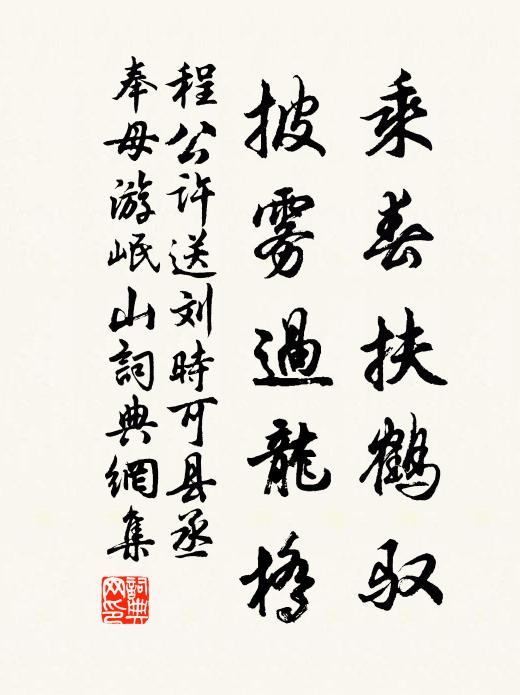 乘春扶鶴馭
披雾過龍橋
程公许送刘時可县丞
奉母游岷山詞典網集
詞典网印